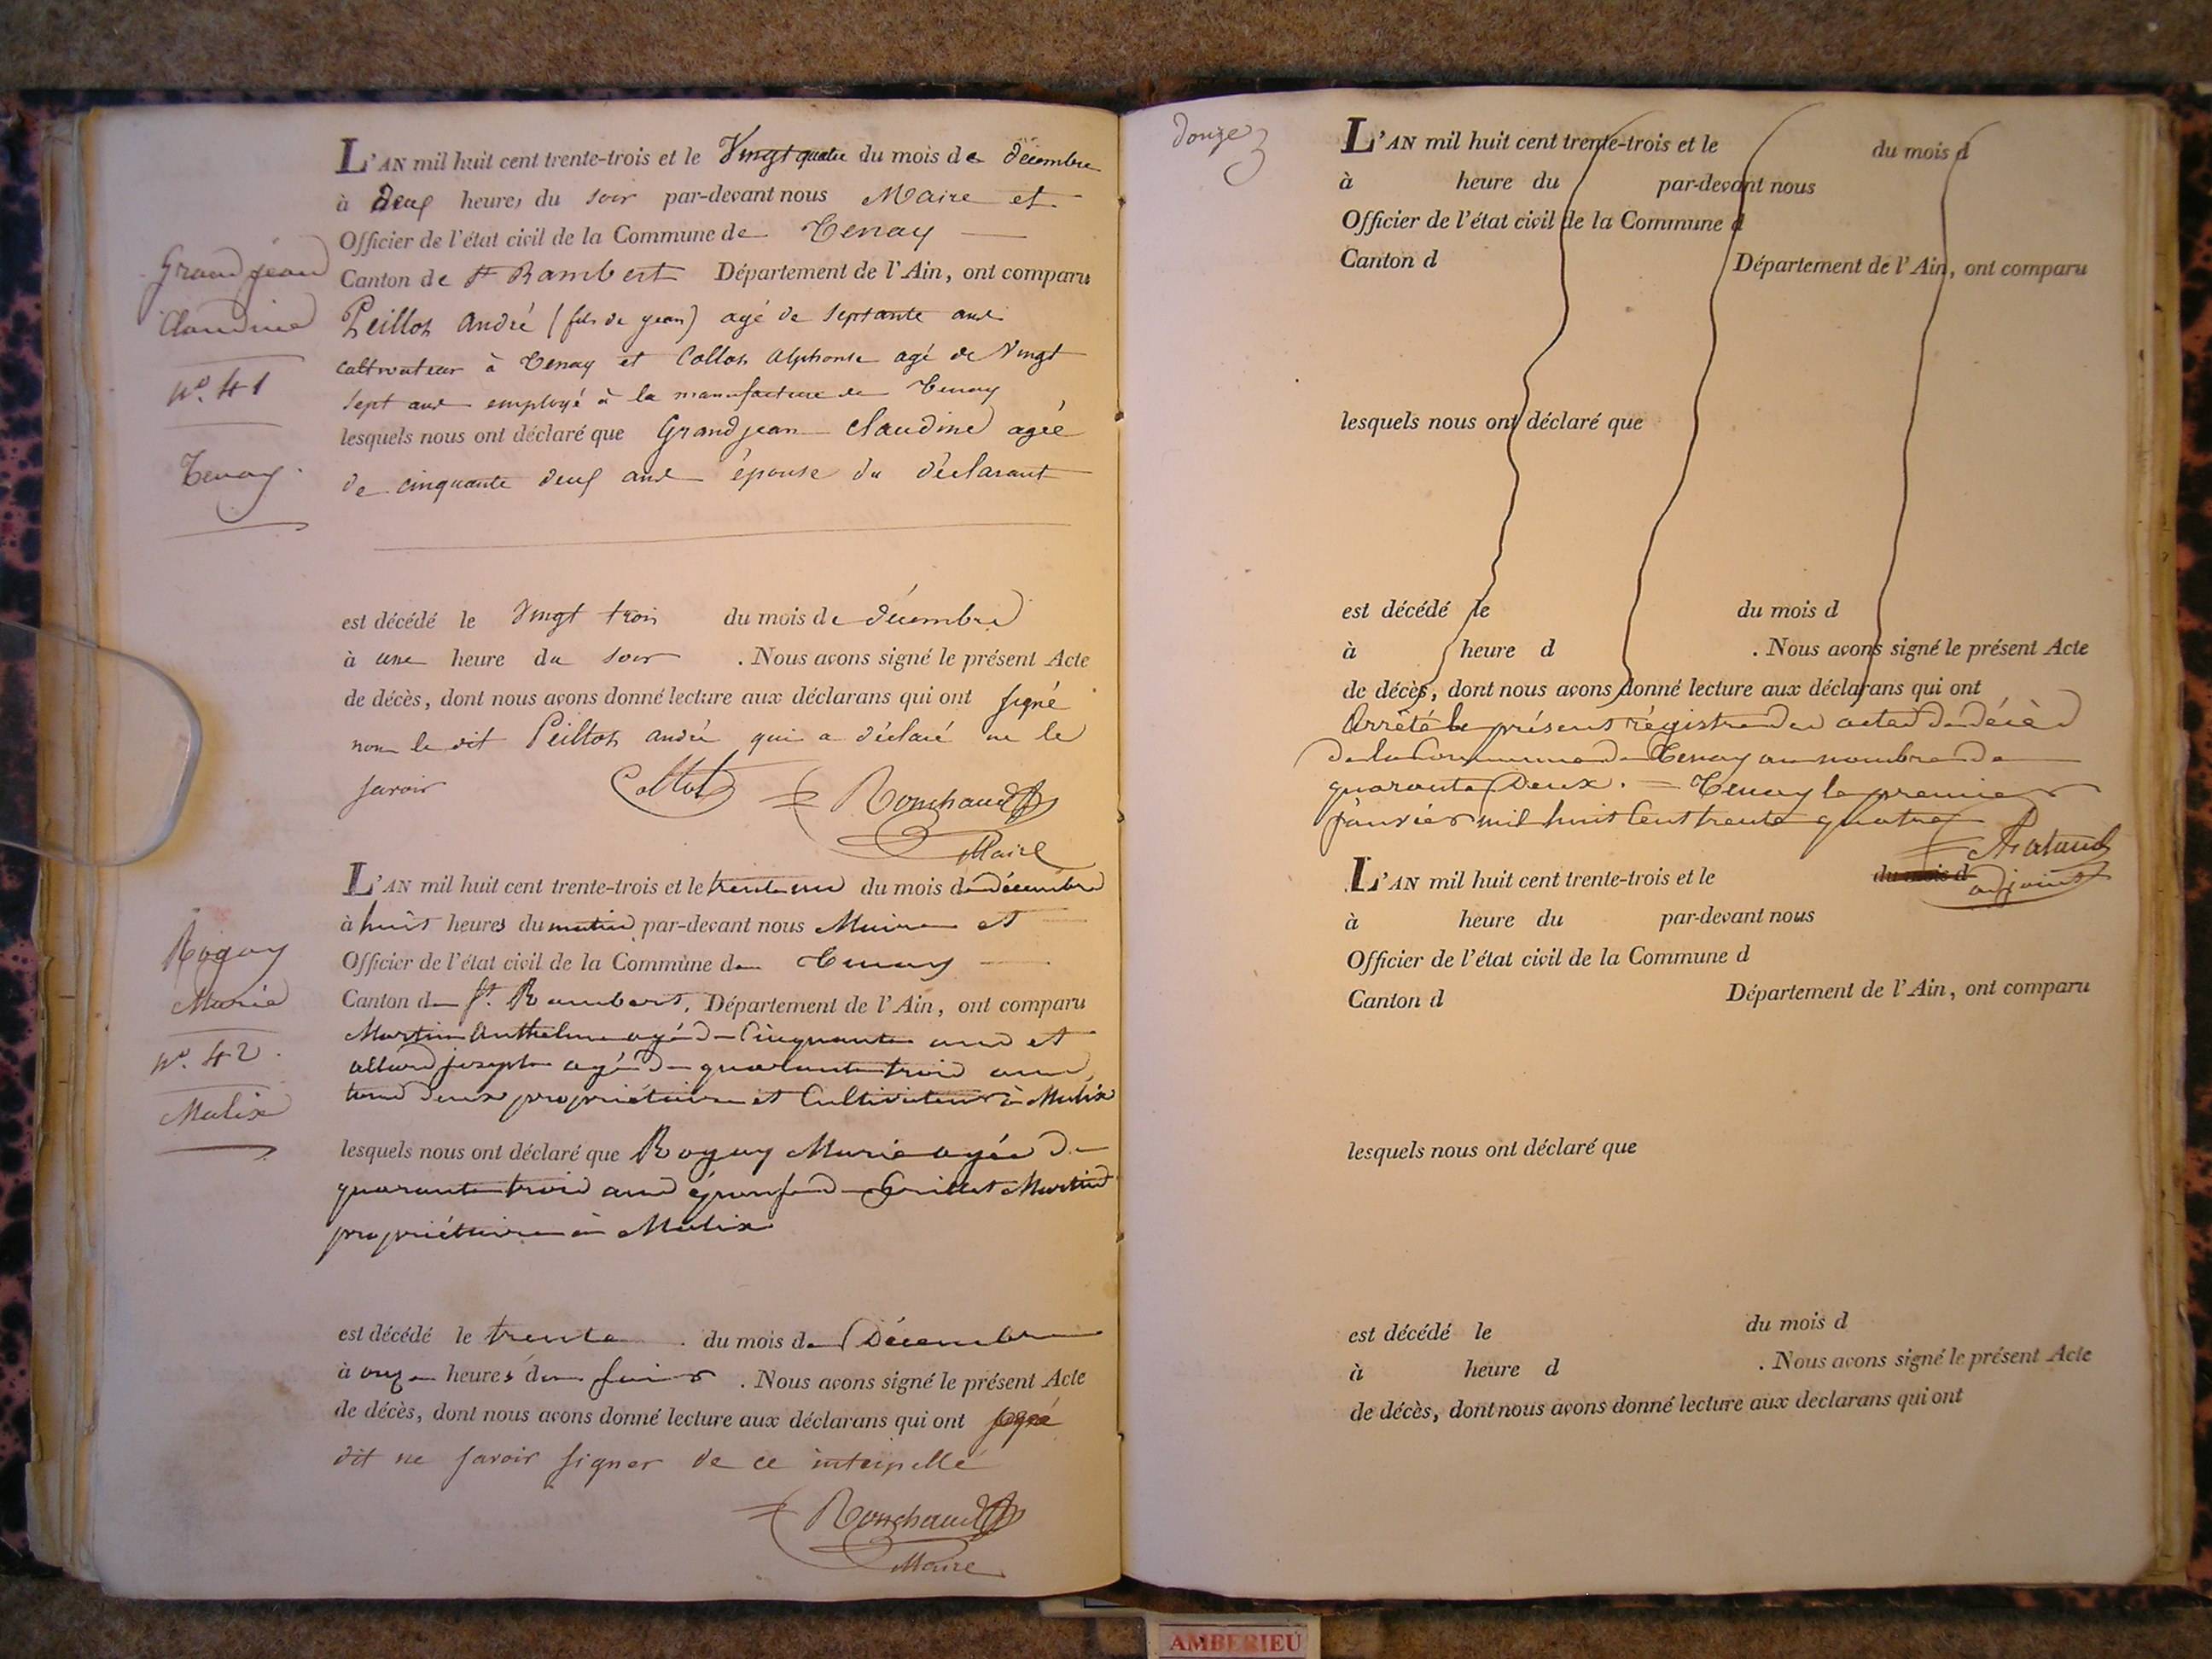 Grand jean
Claudine
N.º 41
Tenay.
L'AN mil huit cent trente-trois et le Vingt quatre du mois de décembre
à deux heures du soir par-devant nous Maire et
Officier de l'état civil de la Commune de Tenay
Canton de St Rambert Département de l'Ain, ont comparu
Peillot André (fils de jean) agé de septante ans
cultivateur à Tenay et Collot Alphonse agé de Vingt
sept ans employé à la manufacture de Tenay
lesquels nous ont déclaré que Grand jean Claudine agée
de cinquante deux ans épouse du déclarant
est décédé le Vingt trois du mois de décembre
à une heure du soir . Nous avons signé le présent Acte
de décès, dont nous avons donné lecture aux déclarans qui ont signé
non le dit Peillot andré qui a déclaré ne le
savoir
Collot Ronchaud
Maire
Roguy
Marie
N.º 42.
Malix
L'AN mil huit cent trente-trois et le trente un du mois de décembre
à huit heures du matin par-devant nous Maire et
Officier de l'état civil de la Commune de Tenay
Canton de St. Rambert. Département de l'Ain, ont comparu
Martin Anthelme agé de Cinquante ans et
joseph agé de quarante trois ans
tous deux propriétaires et Cultivateurs à Malix
lesquels nous ont déclaré que Roguy Marie agée de
quarante trois ans épouse de Grillet Martin
propriétaire à Malix
est décédé le trente . du mois de Décembre
à onze heures du soir . Nous avons signé le présent Acte
de décès, dont nous avons donné lecture aux déclarans qui ont signé
dit ne savoir signer de ce interpellé
Ronchaud
Maire
douze
L'AN mil huit cent trente-trois et le du mois d
à heure du par-devant nous
Officier de l'état civil de la Commune d
Canton d Département de l'Ain, ont comparu
lesquels nous ont déclaré que
est décédé le du mois d
à heure d . Nous avons signé le présent Acte
de décès, dont nous avons donné lecture aux déclarans qui ont
Arrêté le présent régistre des actes de décès
de la Commune de Tenay au nombre de
quarante Deux. = Tenay le premier
janvier mil huit Cent trente quatre
adjoint
L'AN mil huit cent trente-trois et le du mois d
à heure du par-devant nous
Officier de l'état civil de la Commune d
Canton d Département de l'Ain, ont comparu
lesquels nous ont déclaré que
est décédé le du mois d
à heure d . Nous avons signé le présent Acte
de décès, dont nous avons donné lecture aux declarans qui ont
AMBERIEU